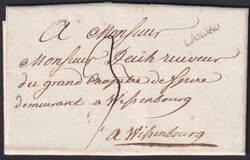 A Monsieur
LANDAU
Monsieur receveur
du grand Chapitre de Spire
demeurant a Wissenbourg
a Wissenbourg